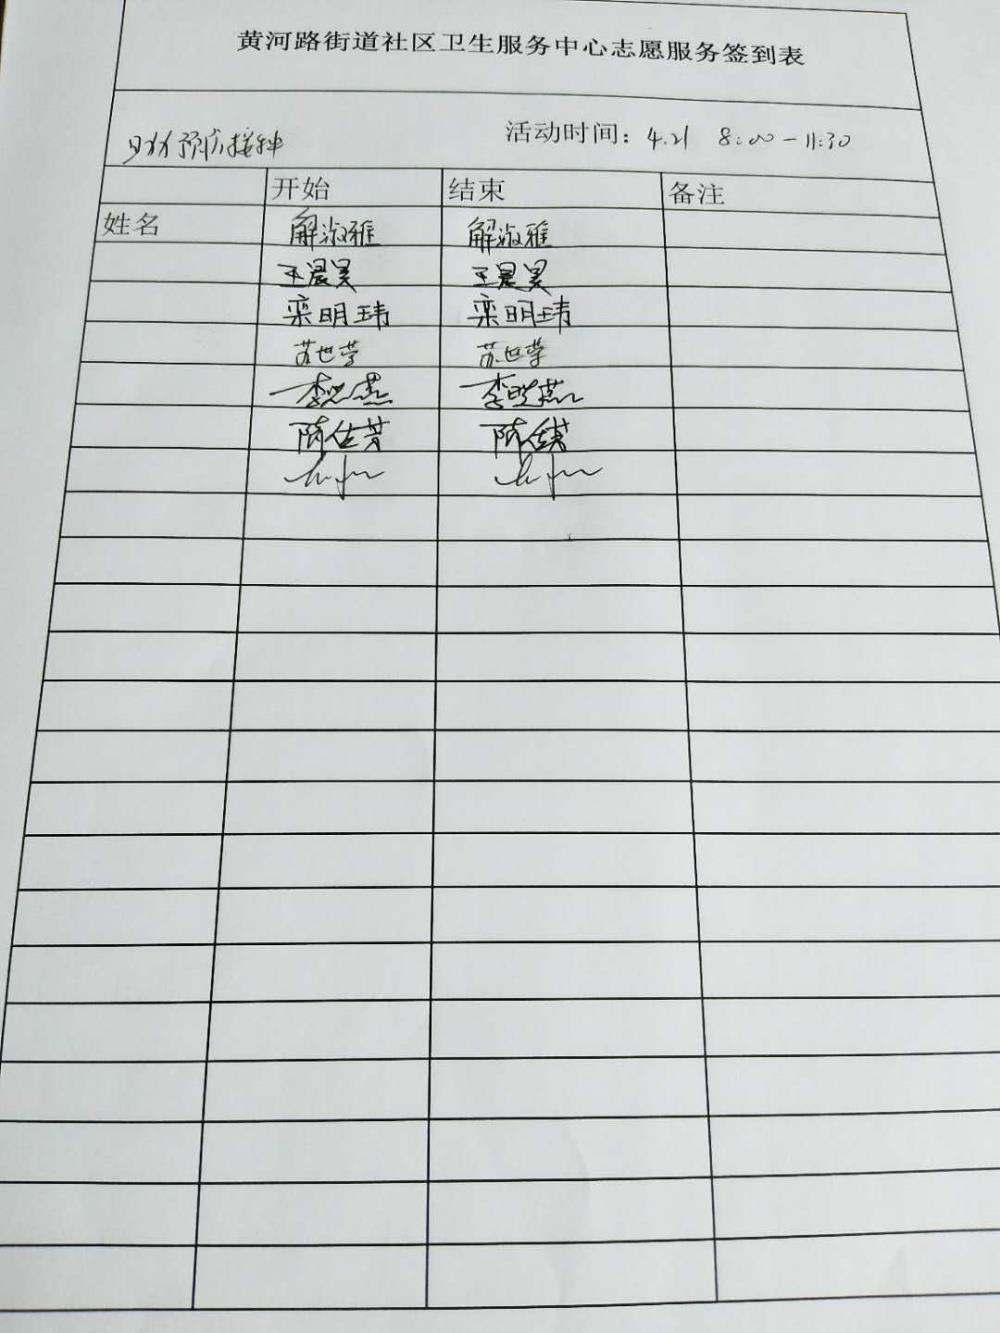 黄河路街道社区卫生服务中心志愿服务签到表
助力预防接种 活动时间：4.21 8:00-11:30
开始 结束 备注
姓名 解淑雅 解淑雅
王晨昊 王晨昊
栾明玮 栾明玮
苏世荣 苏世荣
李 燕 李 燕
隋仕芳 隋仕芳